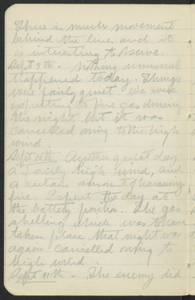 There is much movement
behind the line and it
is interesting to observe.
Sept 9th. Nothing unusual
happened today. Things
were fairly quiet. We were
expecting to fire gas during
the night but it was
cancelled owing to the high
wind.
Sept 10th. Another quiet day
a fairly high wind, and
a certain amount of harassing
fire. I spent the day at
the battery position. The gas
shelling which was to have
taken place that night was
again cancelled owing to
high wind.
Sept 11th. The enemy did